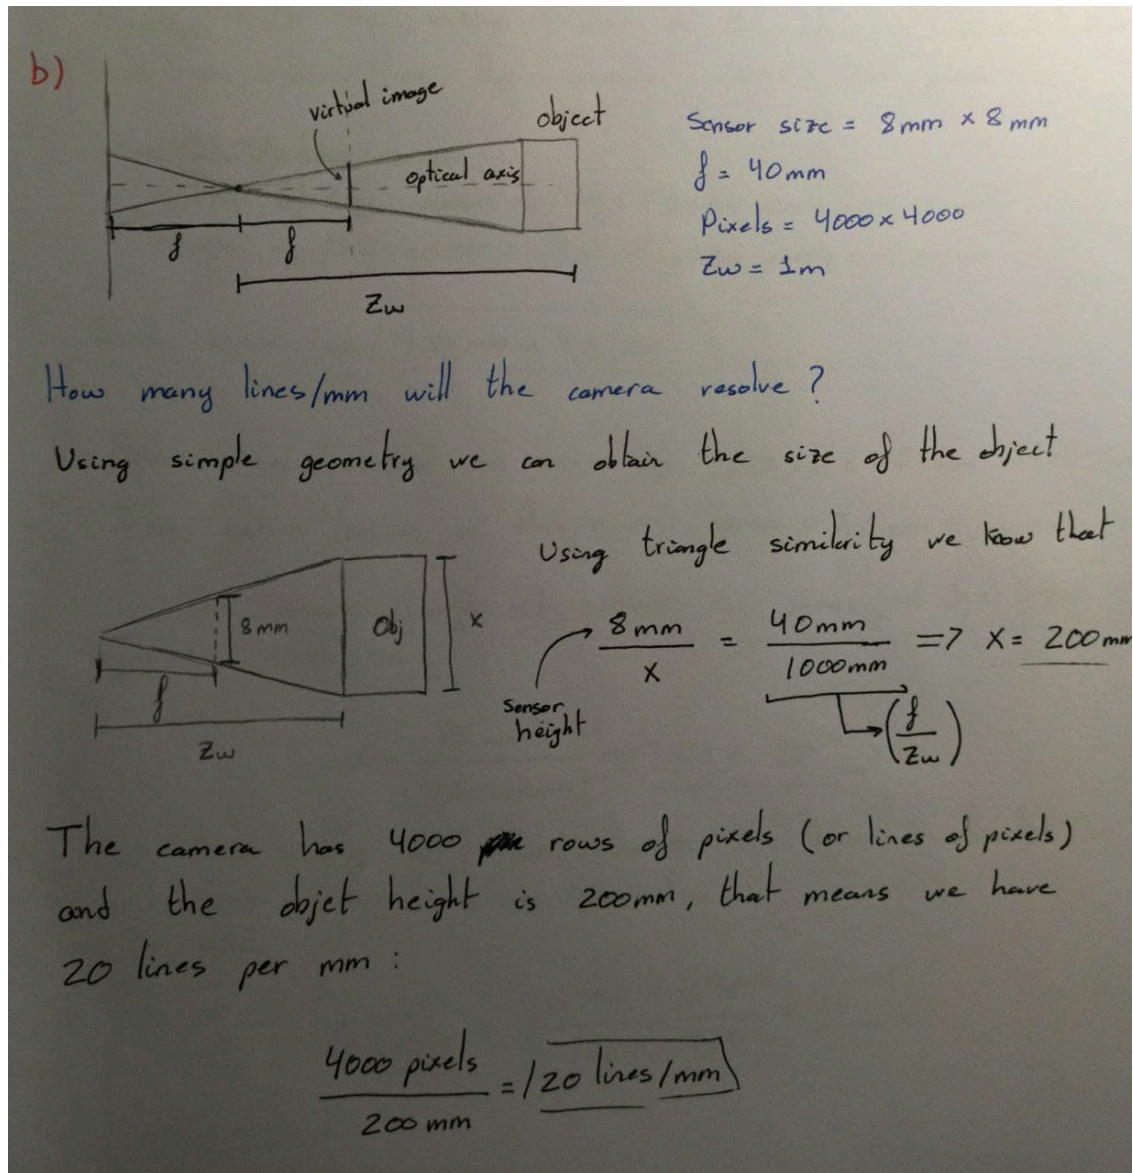 b)
virtual image
object
optical axis
f
f
Zw
Sensor size = 8mm × 8mm
f = 40mm
Pixels = 4000×4000
Zw = 1m
How many lines/mm will the camera resolve?
Using simple geometry we can obtain the size of the object
8mm
Obj
x
f
Zw
Using triangle similarity we know that
8mm / x = 40mm / 1000mm => x = 200mm
Sensor height
(f / Zw)
The camera has 4000 rows of pixels (or lines of pixels)
and the objet height is 200mm, that means we have
20 lines per mm :
4000 pixels / 200 mm = 20 lines/mm